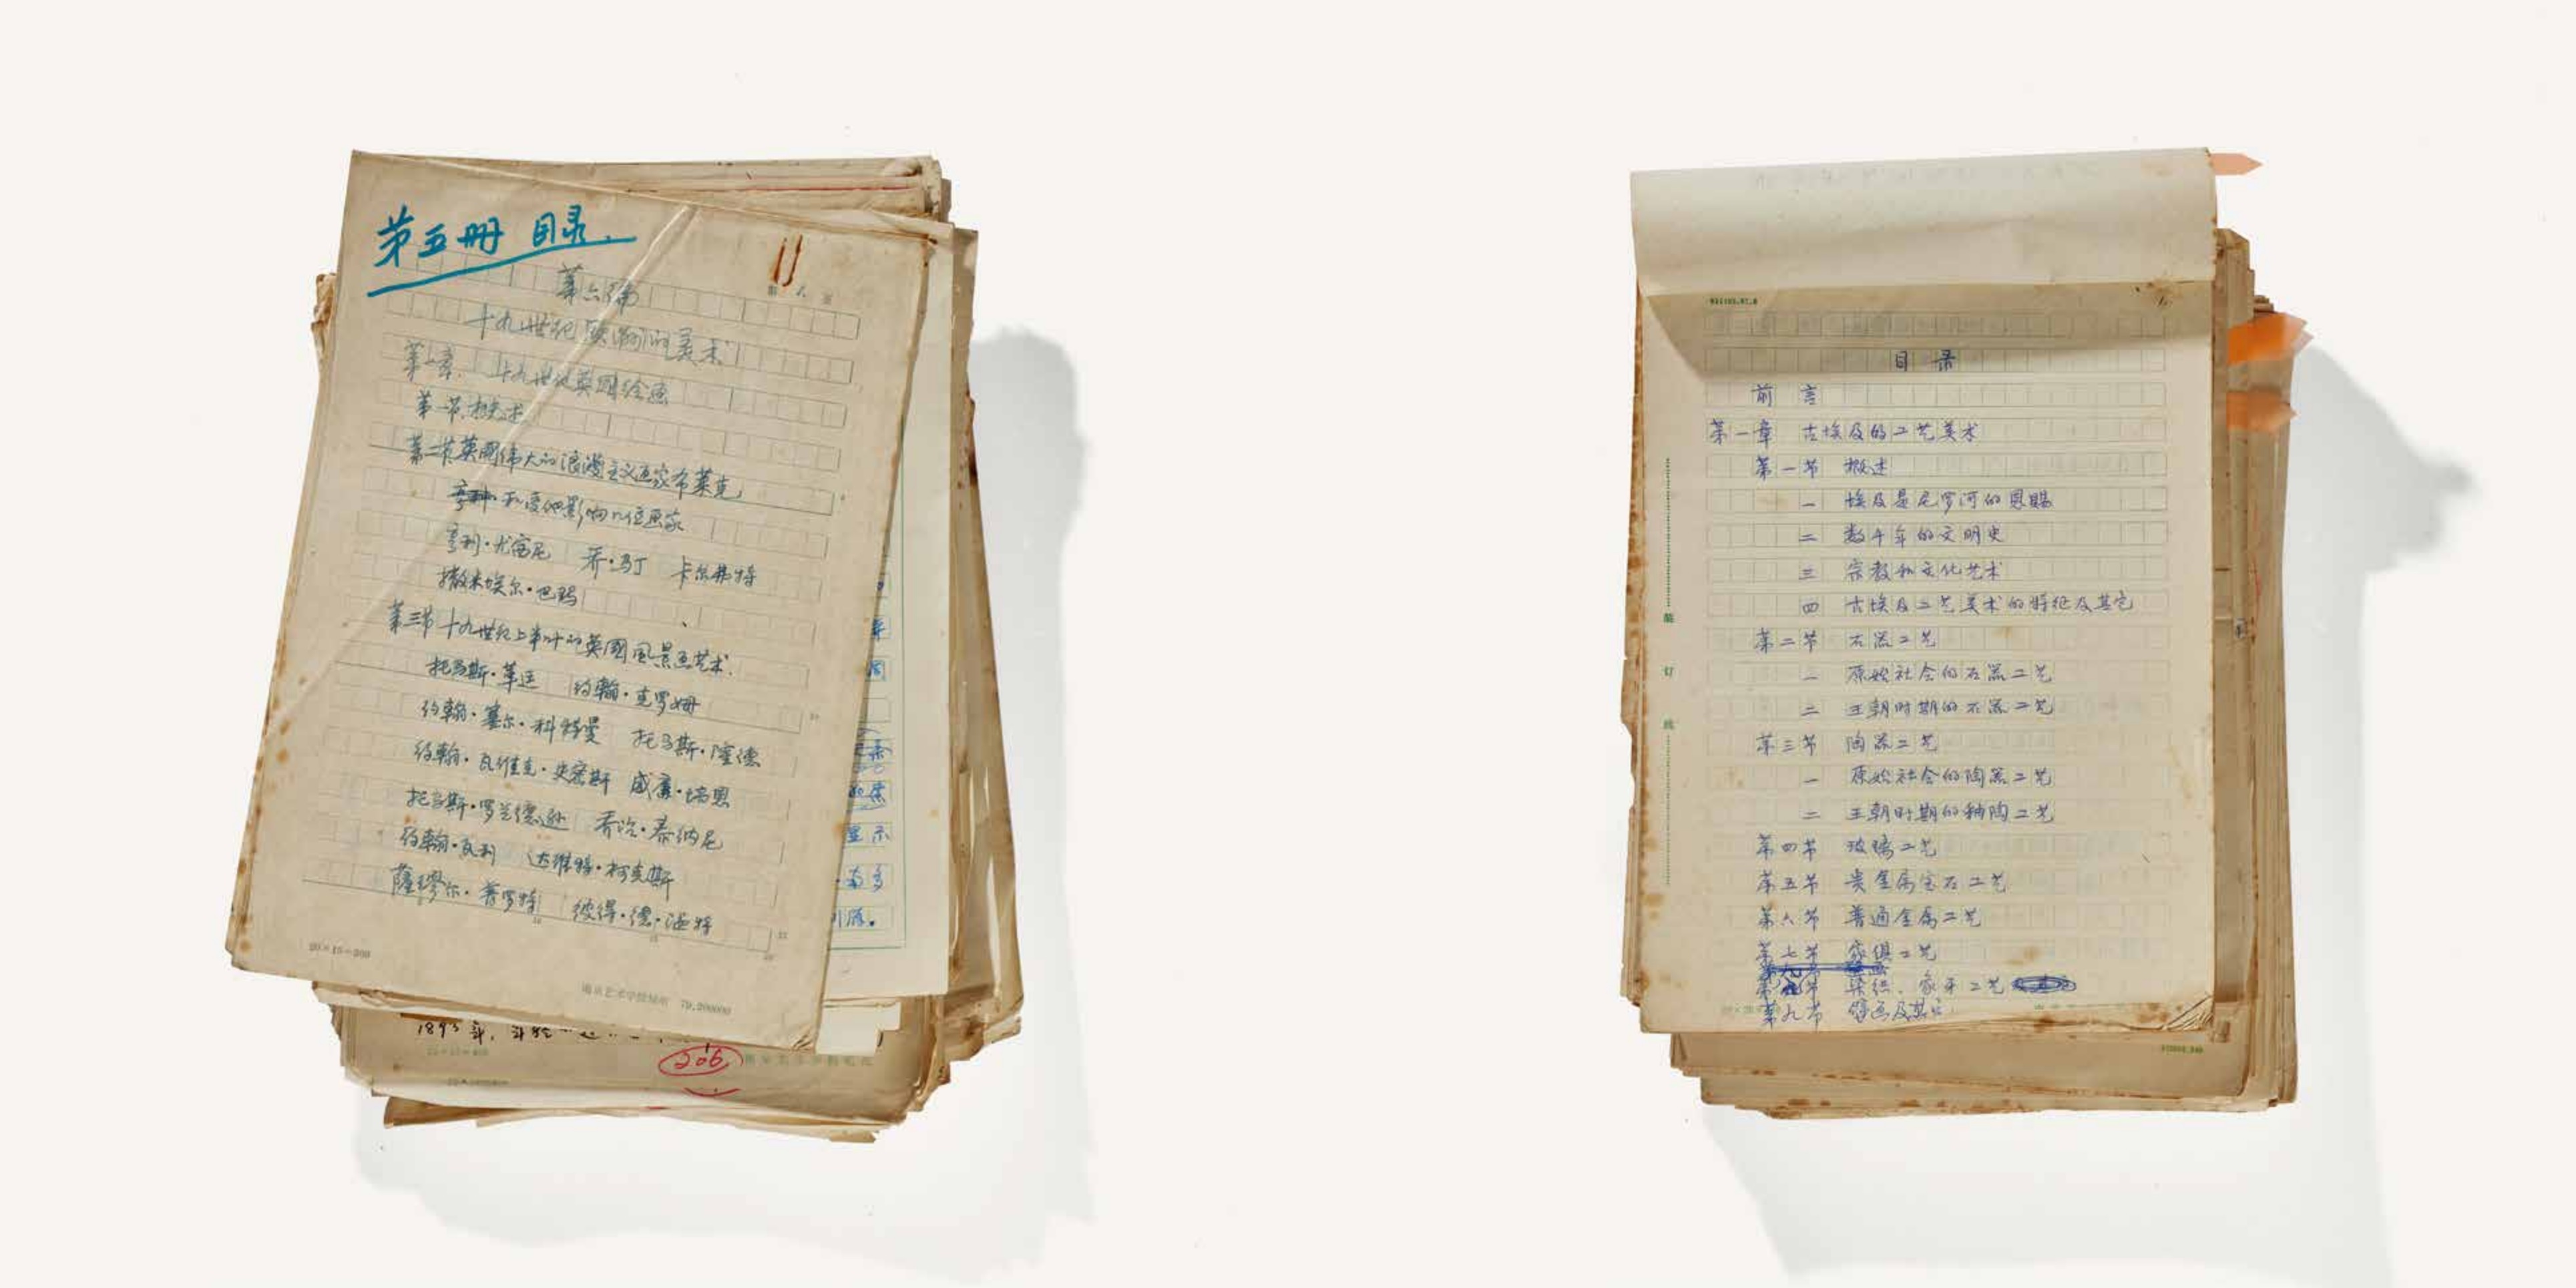 第五册 目录
第六编
十九世纪欧洲的美术
第一章. 十九世纪英国绘画
第一节. 概述
第二节英國伟大的浪漫主义画家布莱克
和受他影响的几位画家
亨利·尤富尼 乔·马丁 卡尔弗特
撒米埃尔·巴玛
第三节十九世纪上半叶的英國风景画艺术.
托马斯·革廷 约翰·克罗姆
约翰·塞尔·科特曼 托马斯·
约翰·瓦维克·史密斯 威廉·培恩
托马斯·罗兰德逊 乔治·泰纳尼
约翰·瓦利 达维特·柯克斯
薩缪尔·普罗特 彼得·德·温特
20×15=300
南京艺术学院 79.200000
206
目录
前言
第一章 古埃及的工艺美术
第一节 概述
一 埃及是尼罗河的恩赐
二 数千年的文明史
三 宗教和文化艺术
四 古埃及工艺美术的特征及其它
第二节 石器工艺
一 原始社会的石器工艺
二 王朝时期的石器工艺
第三节 陶器工艺
一 原始社会的陶器工艺
二 王朝时期的釉陶工艺
第四节 玻璃工艺
第五节 贵金属宝石工艺
第六节 普通金属工艺
第七节 家俱工艺
染织、象牙工艺
第九节 壁画及其它
装
订
线